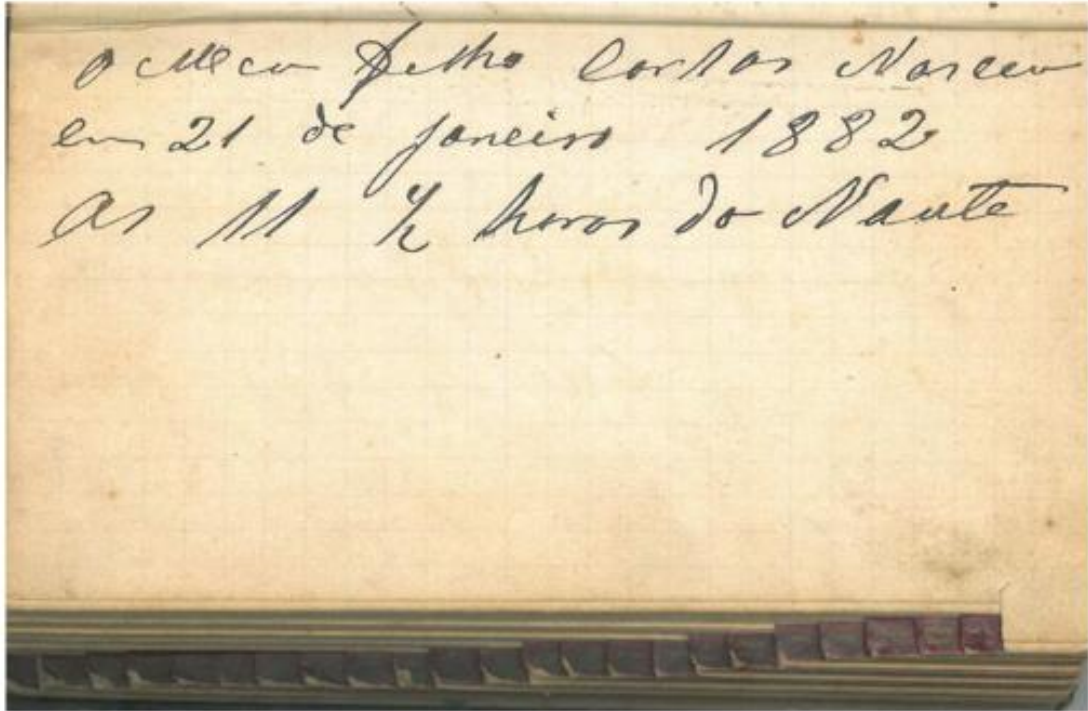 O Meu Filho Carlos Nasceu
em 21 de janeiro 1882
As 11 ½ horas da Naute